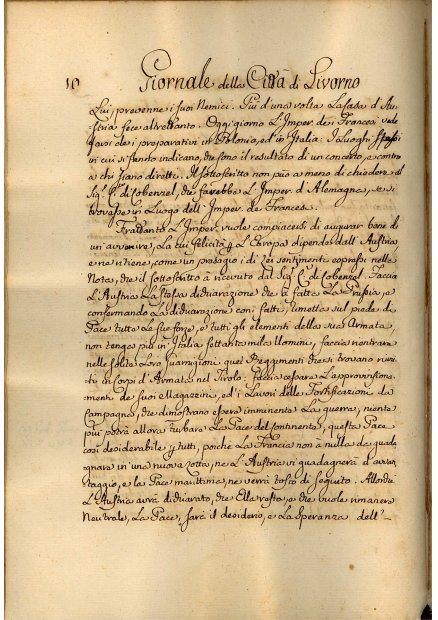 10 Giornale della Città di Livorno
Lui, prevenne i suoi Nemici. Più d'una volta la Casa d'Au-
stria fece altrettanto. Oggi giorno L'Imper. de i Francesi vede
farsi de i preparativi in Polonia, ed in Italia: I Luoghi stessi
in cui si fanno indicano, che sono il resultato di un concerto, e contro
a chi siano diretti. Il sottoscritto non può a meno di chiedere al
Sig.r C. di Cobenzel, che farebbe L'Imper. d'Alemagna, se si
trovasse in Luogo dell'Imper. de Francesi.
Frattanto L'Imper. vuole compiacersi di augurar bene di
un avvenire, La cui felicità p. L'Europa dipende dall'Austria
e ne ritiene, come un presagio i di Lei sentimenti espressi nella
Nota, che il sottoscritto à ricevuto dal Sig. C. de Cobenzel. Faccia
L'Austria La stessa dichiarazione che à fatta La Prussia, e
confermando La dichiarazione con fatti, rimetta sul piede di
Pace tutte Le sue forze, e tutti gli elementi della sua Armata,
non tenga più in Italia settanta mila Uomini, faccia rientrare
nelle solite Loro Guarnigioni quei Reggimenti che si trovano riuni-
ti in Corpi d'Armata nel Tirolo: faccia cessare L'approvvisiona-
mento de suoi Magazzini, ed i Lavori delle Fortificazioni da
Campagna, che dimostrano essere imminente La guerra, niente
più potrà allora turbare La Pace del continente, questa Pace
così desiderabile p. tutti, poiché La Francia non à nulla da guada-
gnare in una nuova Lotta, ne L'Austria vi guadagnerà d'avvan-
taggio, e La Pace marittima ne verrà tosto di seguito. Allorché
L'Austria avrà dichiarato, che Ella resta, e che vuole rimanere
Neutrale, La Pace, sarà il desiderio, e La Speranza dell'-